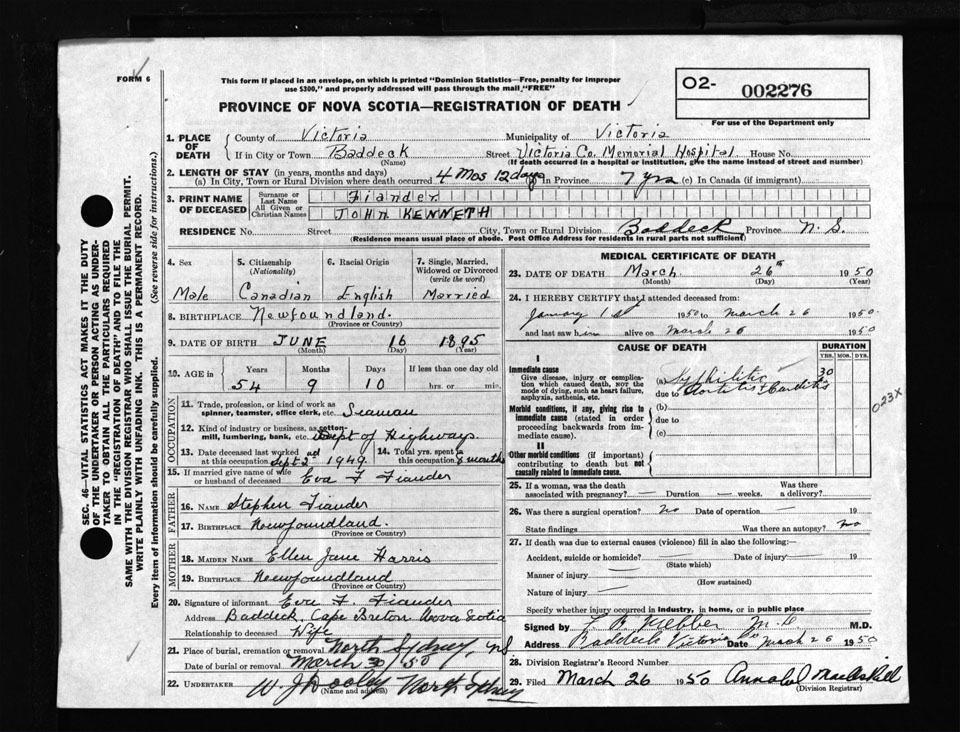 FORM 6
This form if placed in an envelope, on which is printed "Dominion Statistics—Free, penalty for improper
use $300," and properly addressed will pass through the mail "FREE"
PROVINCE OF NOVA SCOTIA—REGISTRATION OF DEATH
O2- 002276
For use of the Department only
SEC. 46—VITAL STATISTICS ACT MAKES IT THE DUTY
OF THE UNDERTAKER OR PERSON ACTING AS UNDER-
TAKER TO OBTAIN ALL THE PARTICULARS REQUIRED
IN THE "REGISTRATION OF DEATH" AND TO FILE THE
SAME WITH THE DIVISION REGISTRAR WHO SHALL ISSUE THE BURIAL PERMIT.
WRITE PLAINLY WITH UNFADING INK. THIS IS A PERMANENT RECORD.
Every item of information should be carefully supplied. (See reverse side for instructions.)
1. PLACE OF DEATH County of Victoria Municipality of Victoria
If in City or Town Baddeck Street Victoria Co. Memorial Hospital House No.
(Name) (If death occurred in a hospital or institution, give the name instead of street and number)
2. LENGTH OF STAY (in years, months and days)
(a) In City, Town or Rural Division where death occurred 4 Mos 12 days In Province 7 yrs (c) In Canada (if immigrant)
3. PRINT NAME OF DECEASED Surname or Last Name Fiander
All Given or Christian Names JOHN KENNETH
RESIDENCE No. Street City, Town or Rural Division Baddeck Province N. S.
(Residence means usual place of abode. Post Office Address for residents in rural parts not sufficient)
4. Sex 5. Citizenship (Nationality) 6. Racial Origin 7. Single, Married, Widowed or Divorced (write the word)
Male Canadian English Married
8. BIRTHPLACE Newfoundland.
(Province or Country)
9. DATE OF BIRTH JUNE 16 1895
(Month) (Day) (Year)
10. AGE in Years Months Days If less than one day old
54 9 10 hrs. or min.
OCCUPATION
11. Trade, profession, or kind of work as
spinner, teamster, office clerk, etc. Seaman
12. Kind of industry or business, as cotton-
mill, lumbering, bank, etc. Dept of Highways.
13. Date deceased last worked at this occupation Sept 2 1949 14. Total yrs. spent in this occupation 8 months
15. If married give name of wife
or husband of deceased Eva F Fiander
FATHER
16. Name Stephen Fiander
17. Birthplace Newfoundland.
(Province or Country)
MOTHER
18. Maiden Name Ellen Jane Harris
19. Birthplace Newfoundland
(Province or Country)
20. Signature of informant Eva F. Fiander
Address Baddeck, Cape Breton Nova Scotia
Relationship to deceased Wife
21. Place of burial, cremation or removal North Sydney, NS
Date of burial or removal March 30/50
22. Undertaker W. J Dooley North Sydney
(Name and address)
MEDICAL CERTIFICATE OF DEATH
23. DATE OF DEATH March 26th 1950
(Month) (Day) (Year)
24. I HEREBY CERTIFY that I attended deceased from:
January 1st 1950 to March 26 1950
and last saw him alive on March 26 1950
CAUSE OF DEATH DURATION
YRS. MOS. DYS.
I
Immediate cause
Give disease, injury or complica-
tion which caused death, NOT the
mode of dying, such as heart failure,
asphyxia, asthenia, etc.
(a) Syphilitic 30
due to Aortitis + Carditis
023X
Morbid conditions, if any, giving rise to
immediate cause (stated in order
proceeding backwards from im-
mediate cause).
(b)
due to
(c)
II
Other morbid conditions (if important)
contributing to death but not
causally related to immediate cause.
25. If a woman, was the death
associated with pregnancy? — Duration — weeks. Was there a delivery?
26. Was there a surgical operation? No Date of operation — 19
State findings Was there an autopsy? No
27. If death was due to external causes (violence) fill in also the following:—
Accident, suicide or homicide? — Date of injury — 19
(State which)
Manner of injury —
(How sustained)
Nature of injury —
Specify whether injury occurred in industry, in home, or in public place
Signed by Webber M.D. M.D.
Address Baddeck Victoria Co Date March 26 1950
28. Division Registrar's Record Number
29. Filed March 26 1950 Annabel MacAskill
(Division Registrar)